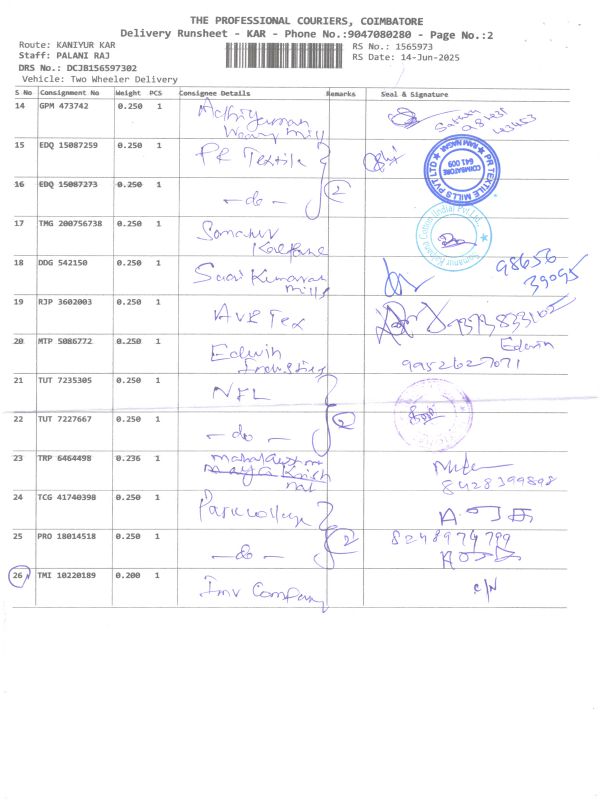 THE PROFESSIONAL COURIERS, COIMBATORE
Delivery Runsheet - KAR - Phone No.:9047080280 - Page No.:2
Route: KANIYUR KAR
RS No.: 1565973
Staff: PALANI RAJ
RS Date: 14-Jun-2025
DRS No.: DCJB156597302
Vehicle: Two Wheeler Delivery
S No Consignment No Weight PCS Consignee Details Remarks Seal & Signature
14 GPM 473742 0.250 1
15 EDQ 15087259 0.250 1 PR Textile
PR TEXTILE MILLS PVT LTD
RAM NAGAR
COIMBATORE
641 009
16 EDQ 15087273 0.250 1 - do - 2
17 TMG 200756738 0.250 1
18 DDG 542150 0.250 1 Saai Kumaran Mills 98656 39095
19 RJP 3602003 0.250 1 AVR Tex
20 MTP 5086772 0.250 1 Edwin Edwin
9952627071
21 TUT 7235305 0.250 1 NFL
22 TUT 7227667 0.250 1 - do - 2
23 TRP 6464498 0.236 1
8428399898
24 TCG 41740398 0.250 1 Park College
25 PRO 18014518 0.250 1 - do - 2 8248974799
26 TMI 10220189 0.200 1 Imv Company C/N